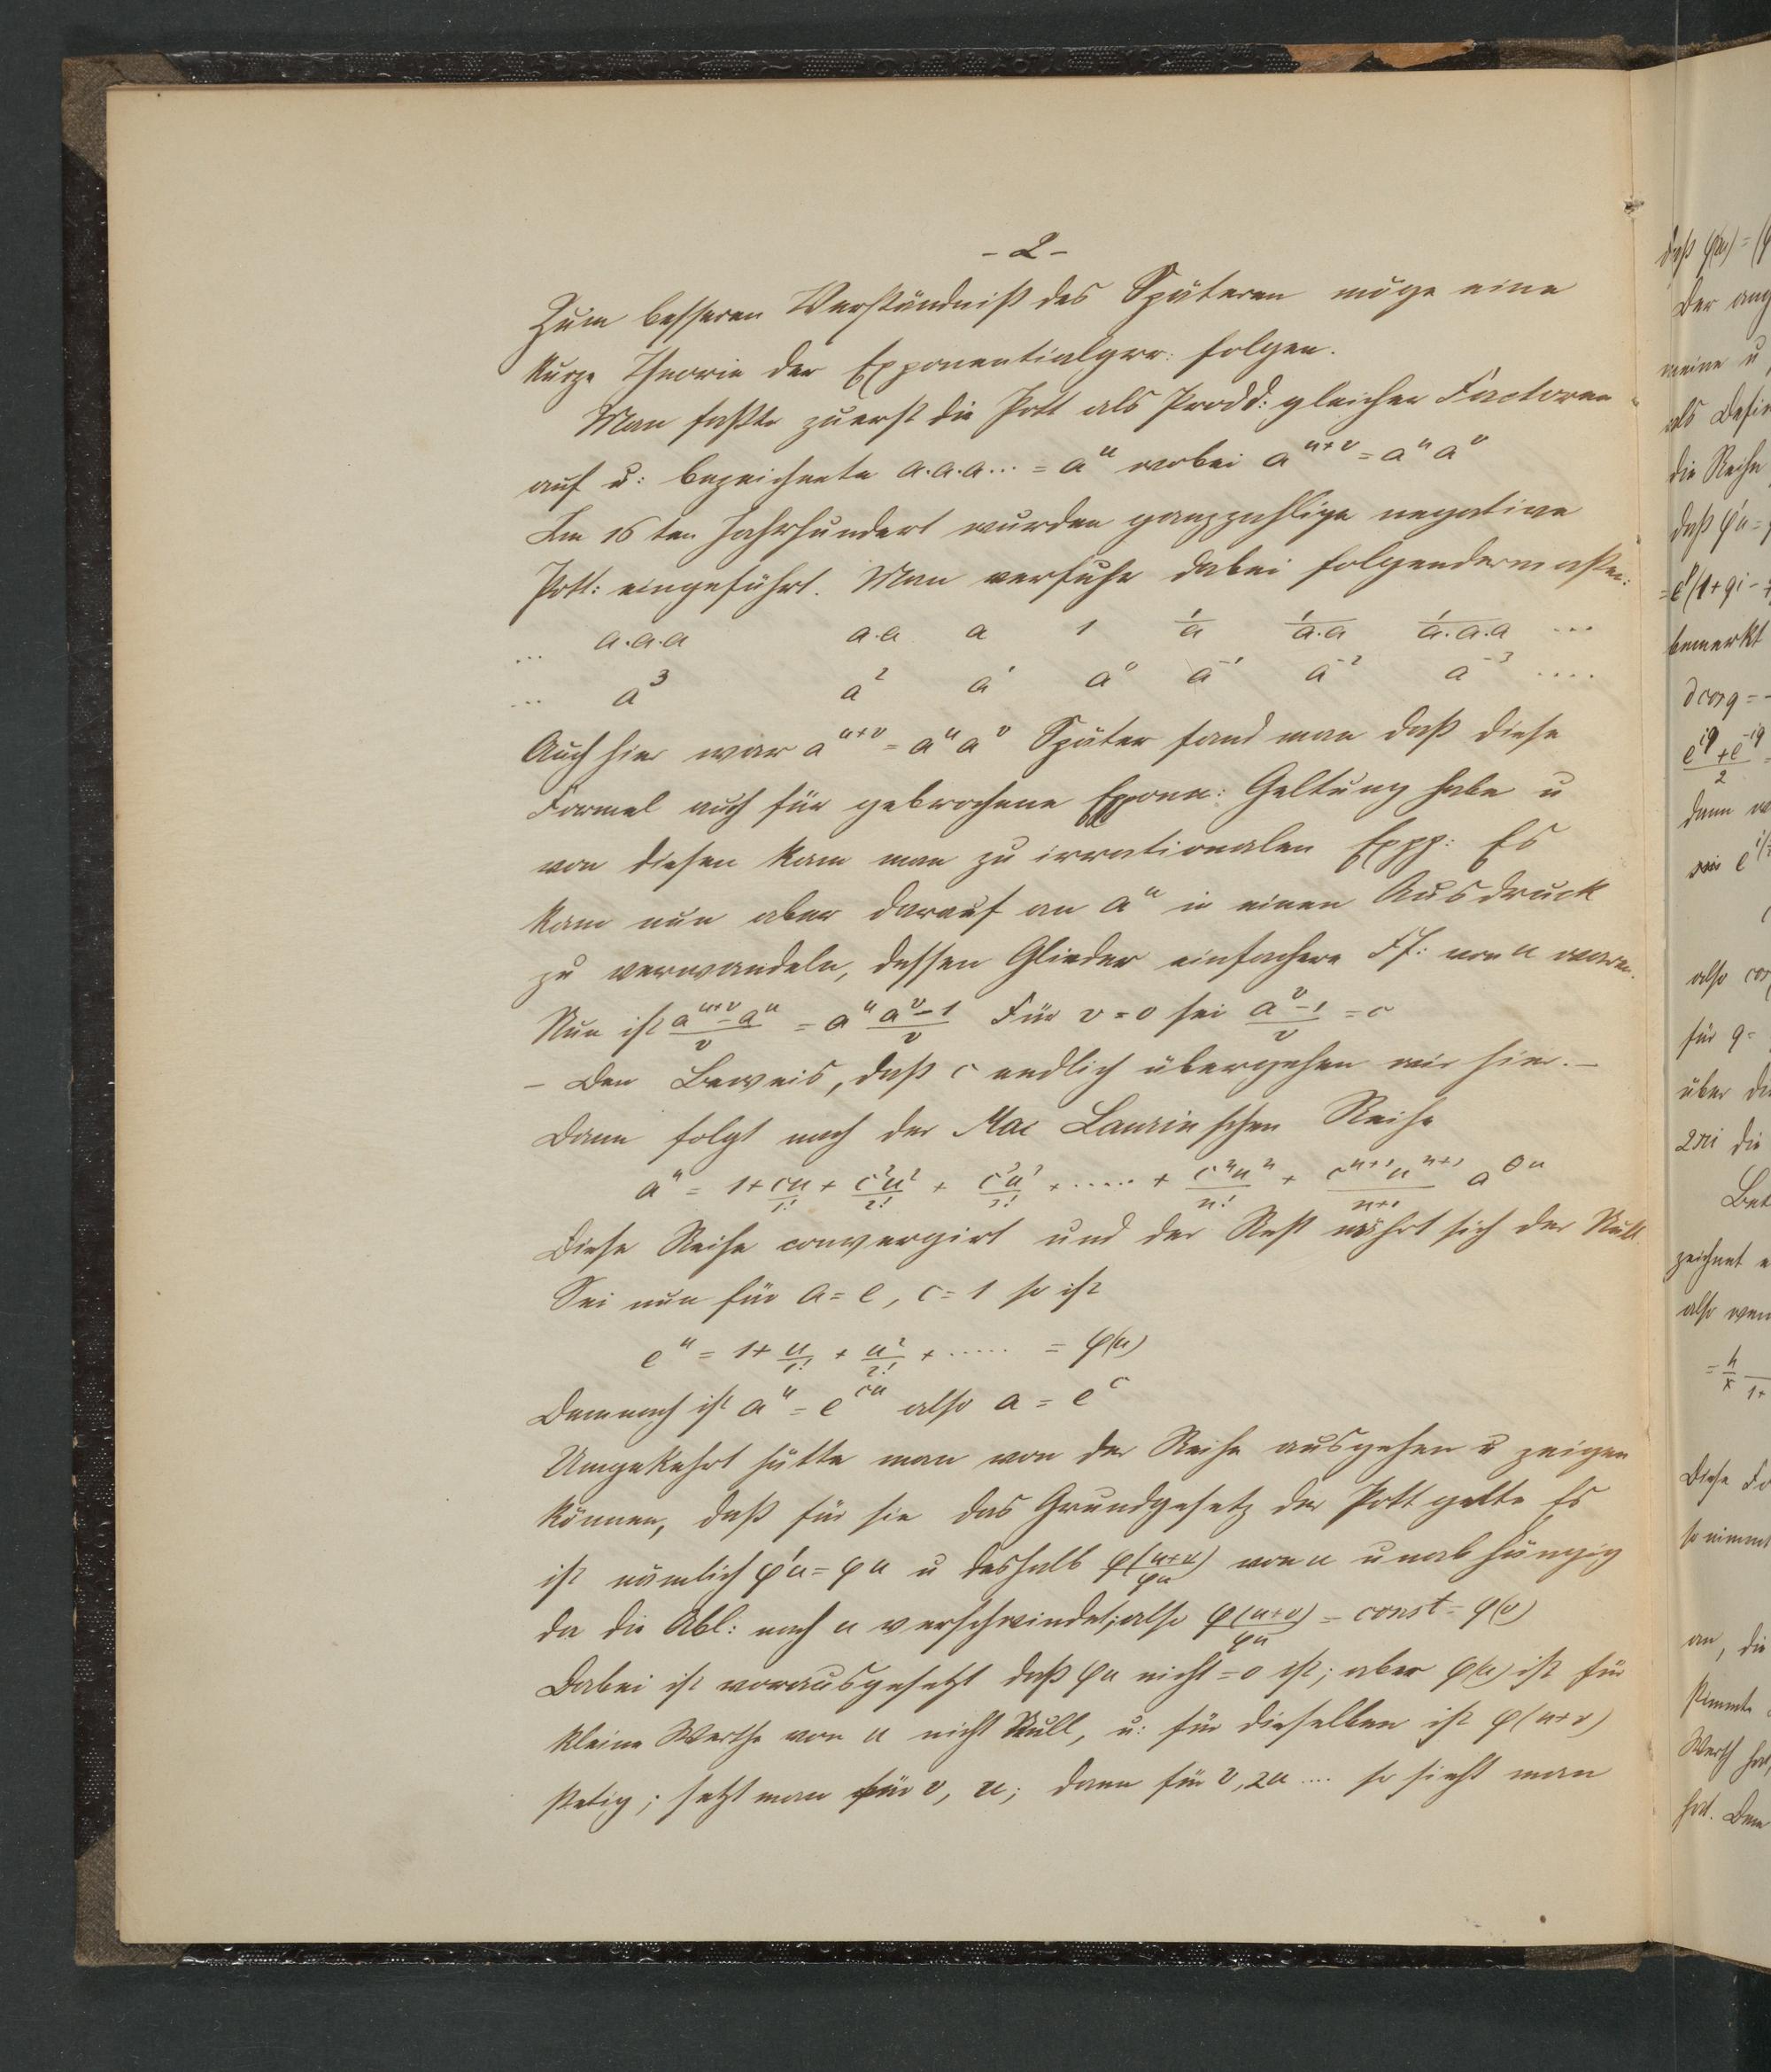 - 2 -
Zum besseren Verständniß des Späteren möge eine
kurze Theorie der Exponentialgrr: folgen.
Man faßte zuerst die Pott als Prodd: gleicher Factoren
auf u: bezeichnete a.a.a... = a^u wobei a^{u+v} = a^u a^v
Im 16 ten Jahrhundert wurden ganzzahlige negative
Pott: eingeführt. Man verfuhr dabei folgendermaßen:
... a.a.a a.a a 1 1/a 1/a.a 1/a.a.a ...
... a^3 a^2 a^1 a^0 a^{-1} a^{-2} a^{-3} ....
Auch hier war a^{u+v} = a^u a^v Später fand man daß diese
Formel auch für gebrochene Exponn: Geltung habe u
von diesen kam man zu irrationalen Expp: Es
kam nun aber darauf an a^u in einen Ausdruck
zu verwandeln, dessen Glieder einfachere Ff: von u waren.
Nun ist (a^{u+v} - a^u)/v = a^u (a^v - 1)/v Für v = 0 sei (a^v - 1)/v = c
– Den Beweis, daß c endlich übergehen wir hier. –
Dann folgt nach der Mac Laurinschen Reihe
a^u = 1 + cu/1! + c^2u^2/2! + c^3u^3/3! + ..... + c^n u^n/n! + c^{n+1} u^{n+1}/n+1 a^{θu}
Diese Reihe convergirt und der Rest nährt sich der Null.
Sei nun für a = e, c = 1 so ist
e^u = 1 + u/1! + u^2/2! + ..... = φ(u)
Demnach ist a^u = e^{cu} also a = e^c
Umgekehrt hätte man von der Reihe ausgehen u zeigen
können, daß für sie das Grundgesetz der Pott gelte Es
ist nämlich φ'u = φu u deshalb φ(u+v)/φu von u unabhängig
da die Abl: nach u verschwindet; also φ(u+v)/φu = const = φ(v)
Dabei ist vorausgesetzt daß φu nicht = 0 ist; aber φ(u) ist für
kleine Werthe von u nicht Null, u: für dieselben ist φ(u+v)
stetig; setzt man für v, u; dann für v, 2u .... so sieht man
daß φ(u) = (φ
Der ang
meine u
als Defin
die Reihe
daß φ'u =
= e^p (1 + qi -
bemerkt
d cos q = -
(e^{iq} + e^{-iq})/2
dann
also cos
für q =
über
2πi die
zeichnet
also wen
= h/x 1+
Diese Fo
so nimmt
an, die
stimmte
Werth hat,
hat. Denn